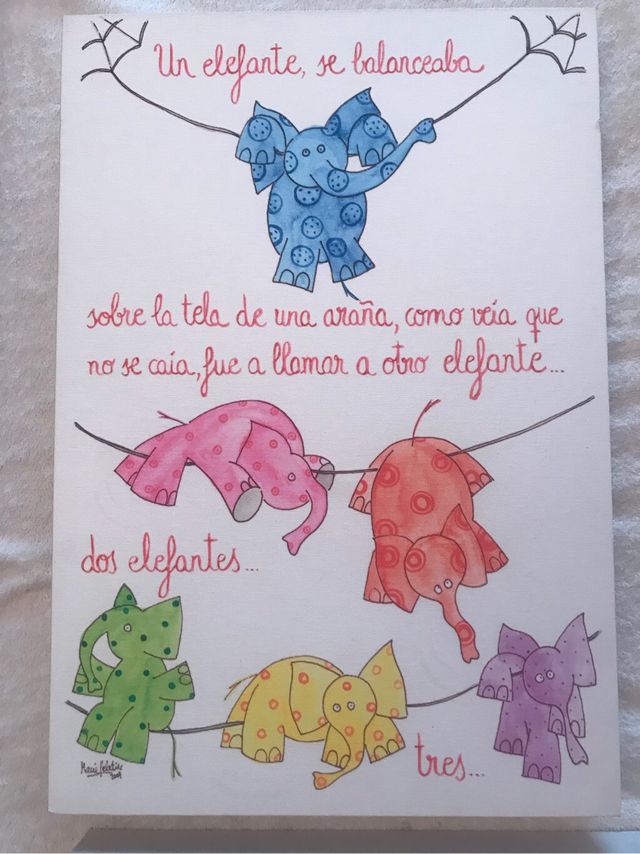 Un elefante, se balanceaba
sobre la tela de una araña, como veía que
no se caía, fue a llamar a otro elefante...
dos elefantes...
tres...